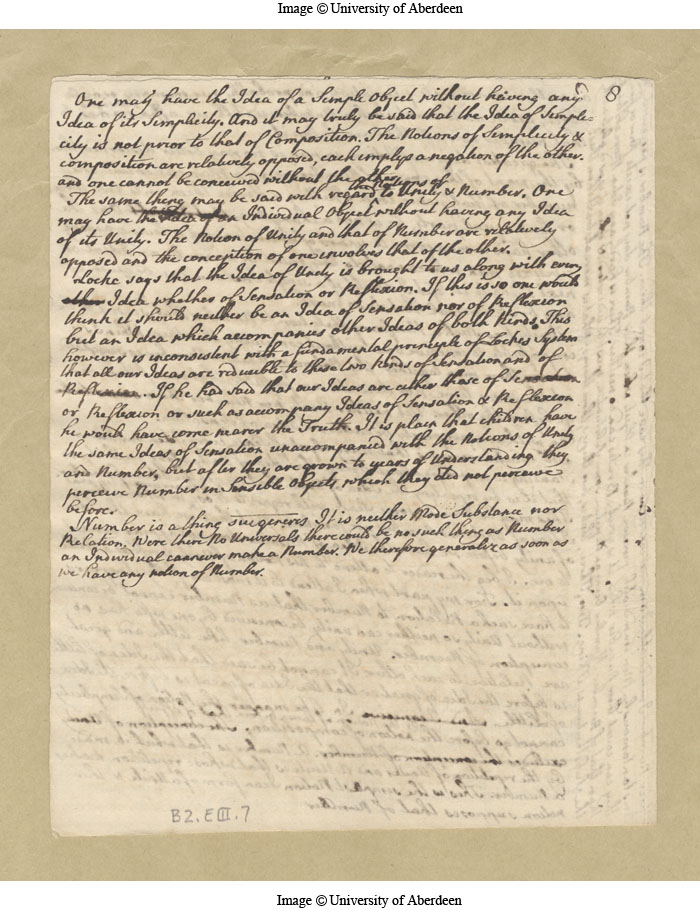 Image © University of Aberdeen
8
One may have the Idea of a Simple Object without having any
Idea of its Simplicity. And it may truly be said that the Idea of Simpli-
city is not prior to that of Composition. The Notions of Simplicity &
composition are relatively opposed, each implys a negation of the other.
and one cannot be conceived without the other.
the Notions of
The same thing may be said with regard to Unity & Number. One
may have the Idea of an Individual Object without having any Idea
of its Unity. The Notion of Unity and that of Number are relatively
opposed and the conception of one involves that of the other.
Locke says that the Idea of Unity is brought to us along with every
other Idea whether of Sensation or Reflexion. If this is so one would
think it should neither be an Idea of Sensation nor of Reflexion
but an Idea which accompanies other Ideas of both kinds. This
however is inconsistent with a fundamental principle of Lockes System
that all our Ideas are reducible to these two kinds of Sensation and of
Reflexion. If he had said that our Ideas are either those of Sensation
or Reflexion or such as accompany Ideas of Sensation & Reflexion
he would have come nearer the Truth. It is plain that children have
the same Ideas of Sensation unaccompanied with the Notions of Unity
and Number, but after they are grown to years of Understanding they
perceive Number in Sensible Objects which they did not perceive
before.
Number is a thing sui generis. It is neither Mode Substance nor
Relation. Were there No Universals there could be no such thing as Number
an Individual can never make a Number. We therefore generalize as soon as
we have any notion of Number.
B2.EIII.7
Image © University of Aberdeen